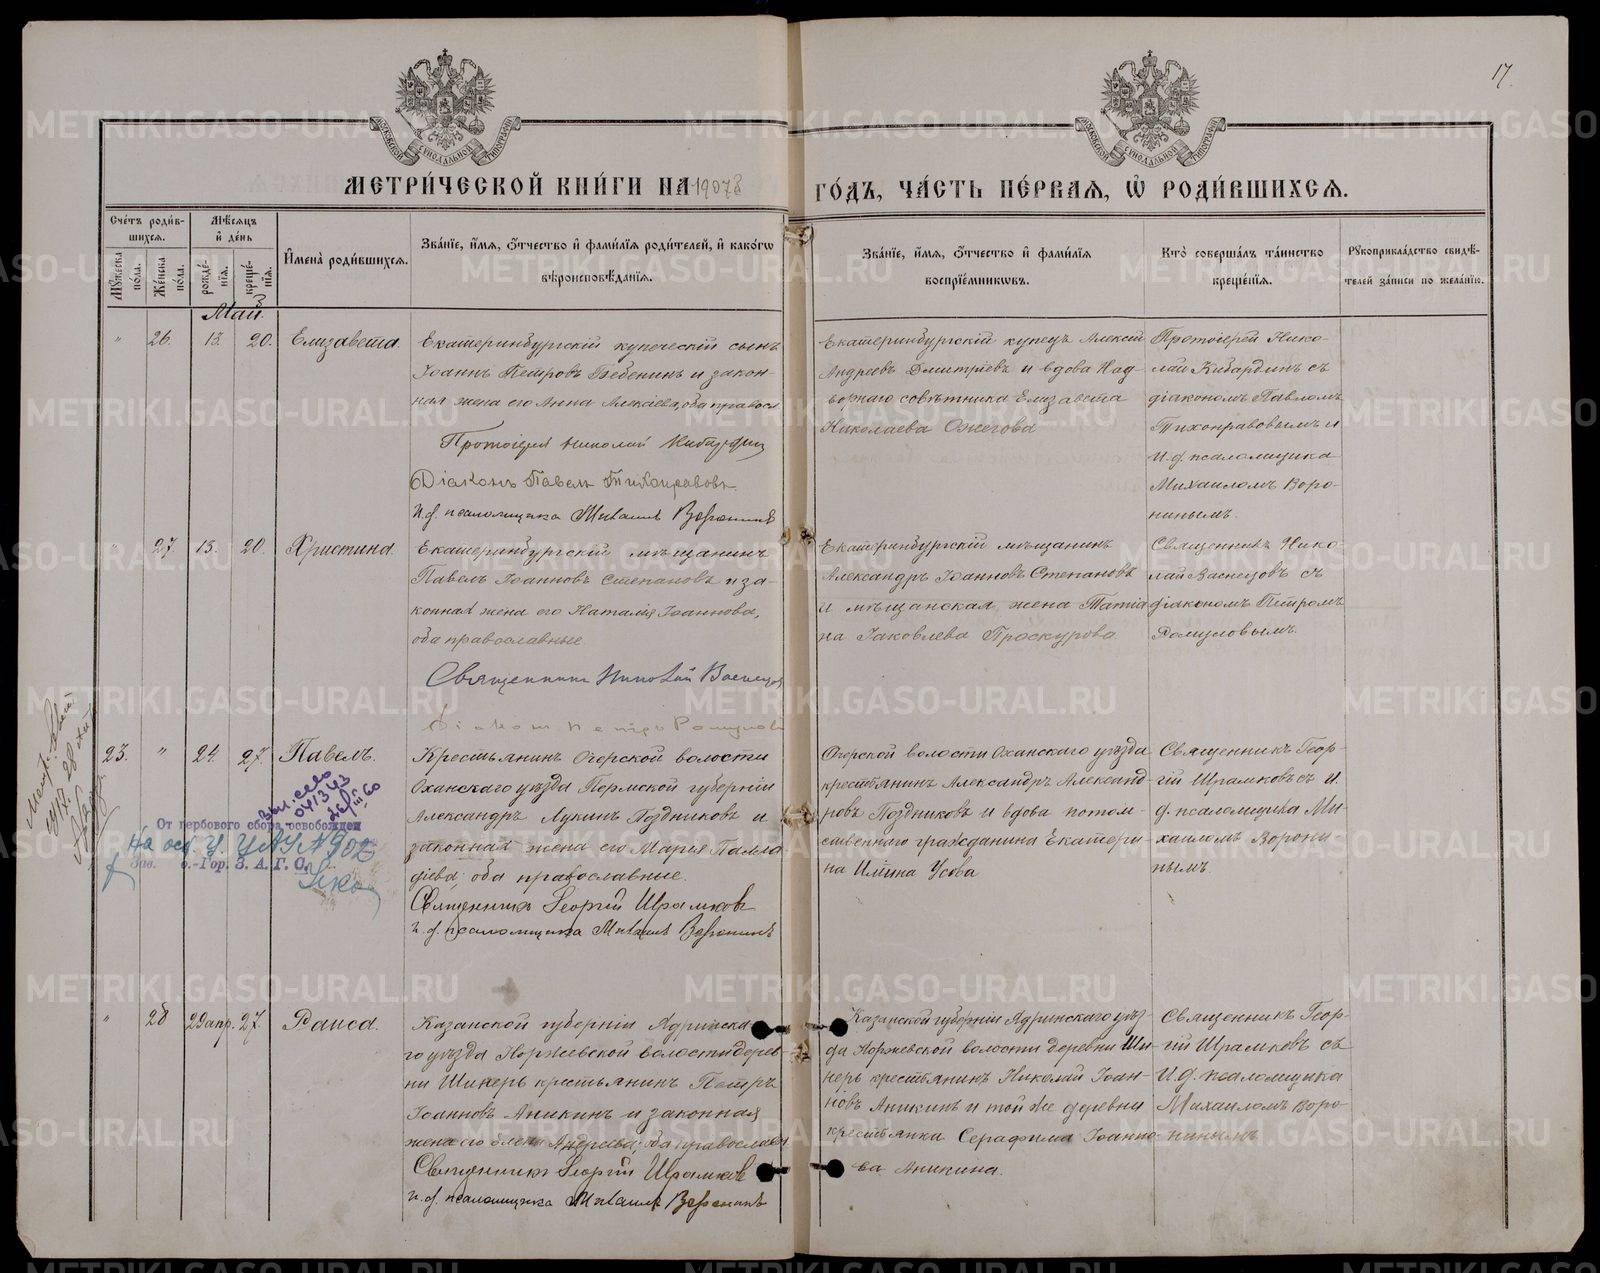 17.
МОСКОВСКОЙ СѴНОДАЛЬНОЙ ТИПОГРАФІИ
МОСКОВСКОЙ СѴНОДАЛЬНОЙ ТИПОГРАФІИ
МЕТРИ́ЧЕСКОЙ КНИ́ГИ НА 1907 ГО́ДЪ, ЧА́СТЬ ПЕ́РВАЯ, Ѡ҆ РОДИ́ВШИХСЯ.
Сче́тъ роди́вшихся.
Мꙋ́жеска пола.
Же́нска пола.
Мѣ́сяцъ и҆ де́нь
рожде́нїя.
креще́нїя.
И҆мена̀ роди́вшихся.
Зва́нїе, и҆́мя, ѻ҆́тчество и҆ фами́лїя роди́телей, и҆ како́гѡ вѣроисповѣ́данїя.
Зва́нїе, и҆́мя, ѻ҆́тчество и҆ фами́лїя воспрїе́мникѡвъ.
Кто̀ соверша́лъ та́инство креще́нїя.
Рꙋкоприкла́дство свидѣ́телей за́писи по жела́нїю.
Май.
" 26. 13. 20. Елизавета.
Екатеринбургскій купеческій сынъ
Іоаннъ Петровъ Бебенинъ и закон-
ная жена его Анна Алексіева, оба правосл
Протоіерей Николай Кибардин
Діаконъ Павелъ Тихонравовъ.
И.д. псаломщика Михаилъ Воронинъ
Екатеринбургскій купецъ Алексій
Андреевъ Дмитріевъ и вдова Над-
ворнаго совѣтника Елизавета
Николаева Ожегова
Протоіерей Нико-
лай Кибардинъ съ
діакономъ Павломъ
Тихонравовымъ и
и.д. псаломщика
Михаиломъ Воро-
нинымъ.
" 27. 13. 20. Христина.
Екатеринбургскій мѣщанинъ
Павелъ Іоанновъ Степановъ и за-
конная жена его Наталія Іоаннова,
оба православные.
Священникъ Николай Васнецов
Діаконъ Петръ Ромулов
Екатеринбургскій мѣщанинъ
Александръ Іоанновъ Степановъ
и мѣщанская жена Татіа
на Іаковлева Проскурова
Священникъ Нико-
лай Васнецовъ съ
діакономъ Петромъ
Ромуловымъ.
23. " 24. 27. Павелъ.
Крестьянинъ Огорской волости
Оханскаго уѣзда Пермской губерніи
Александръ Лукинъ Поздниковъ и
законная жена его Марья Палла
діева, оба православные.
Священникъ Георгій Шрамковъ
и.д. псаломщика Михаилъ Воронинъ
Огорской волости Оханскаго уѣзда
крестьянинъ Александръ Александ-
ровъ Поздниковъ и вдова потом-
ственнаго гражданина Екатери-
на Ильина Усова
Священникъ Геор-
гій Шрамковъ съ и.
д. псаломщика Ми-
хаиломъ Ворони
нымъ.
От гербового сбора освобожден
Зав. -Гор. З.А.Г.С.
" 28 29 апр. 27. Раиса.
Казанской губерніи Ядринска-
го уѣзда Норжевской волости дерев-
ни Шинеръ крестьянинъ Петръ
Іоанновъ Аникинъ и законная
жена его Елена Андреева, оба православн
Священникъ Георгій Шрамковъ
и.д. псаломщика Михаилъ Воронинъ
Казанской губерніи Ядринскаго уѣз-
да Норжевской волости деревни Ши-
неръ крестьянинъ Николай Іоан-
новъ Аникинъ и той же деревни
крестьянка Серафима Іоанно-
ва Аникина.
Священникъ Геор-
гій Шрамковъ съ
и.д. псаломщика
Михаиломъ Воро-
нинымъ
METRIKI.GASO-URAL.RU